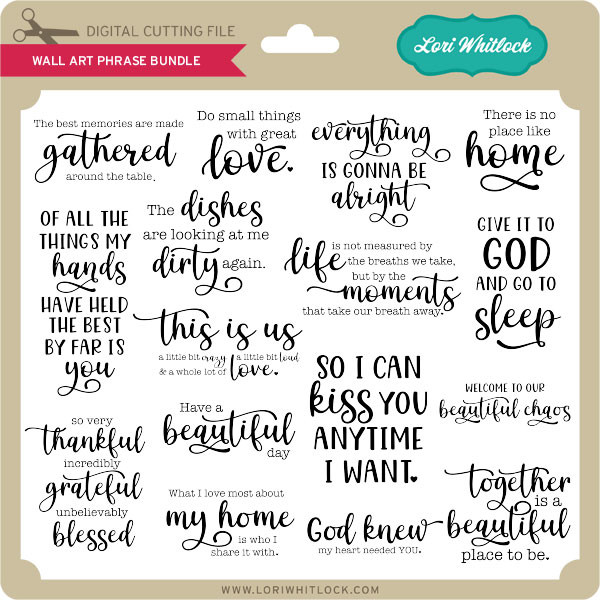 DIGITAL CUTTING FILE
WALL ART PHRASE BUNDLE
Lori Whitlock
The best memories are made
gathered
around the table.
Do small things
with great
love.
everything
IS GONNA BE
alright
There is no
place like
home
OF ALL THE
THINGS MY
hands
HAVE HELD
THE BEST
BY FAR IS
you
The dishes
are looking at me
dirty again.
life is not measured by
the breaths we take,
but by the
moments
that take our breath away.
GIVE IT TO
GOD
AND GO TO
sleep
this is us
a little bit crazy a little bit loud
& a whole lot of love.
SO I CAN
kiss YOU
ANYTIME
I WANT.
WELCOME TO OUR
beautiful chaos
so very
thankful
incredibly
grateful
unbelievably
blessed
Have a
beautiful
day
What I love most about
my home
is who I
share it with.
God knew
my heart needed YOU.
together
is a
beautiful
place to be.
WWW.LORIWHITLOCK.COM